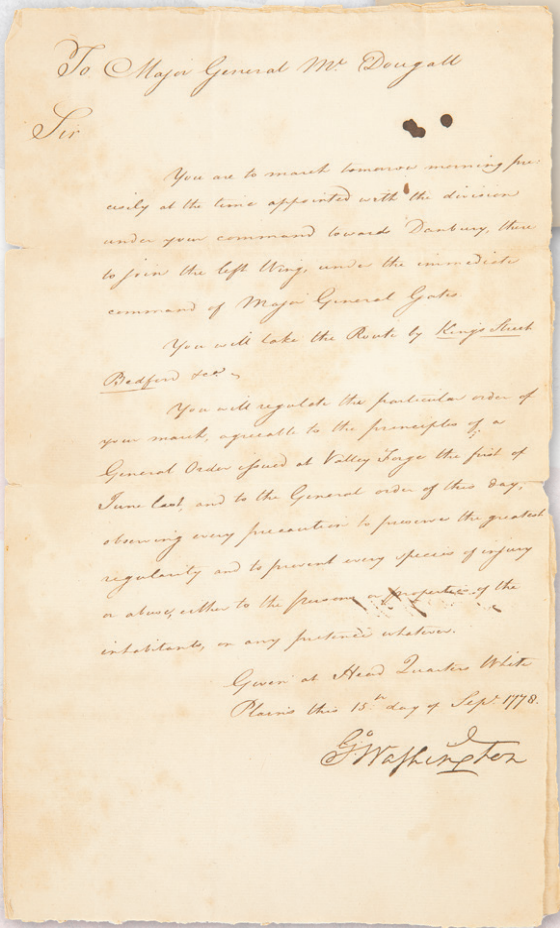 To Major General Mc Dougall
Sir
You are to march tomorrow morning pre-
cisily at the time appointed with the division
under your command toward Danbury, there
to join the left Wing, under the immediate
command of Major General Gates.
You will take the Route by King's Street
Bedford &ca.
You will regulate the particular order of
your march, agreable to the principles of a
General Order issued at Valley Forge the first of
June last, and to the General order of this day,
observing every precaution to preserve the greatest
regularity and to prevent every species of injury
or abuse, either to the persons or properties of the
inhabitants, on any pretence whatever.
Given at Head Quarters White
Plains this 15th day of Sepr. 1778.
Go Washington